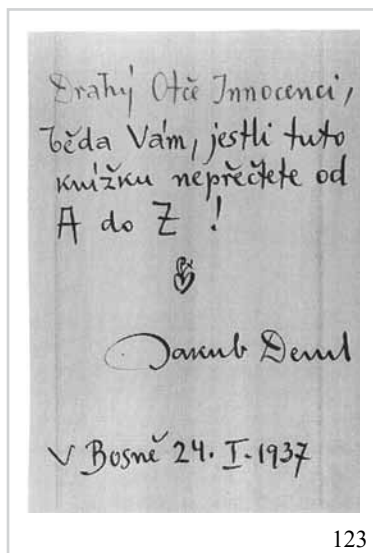 Drahý Otče Innocenci,
běda Vám, jestli tuto
knížku nepřečtete od
A do Z !
Jakub Deml
V Bosně 24. I. 1937
123